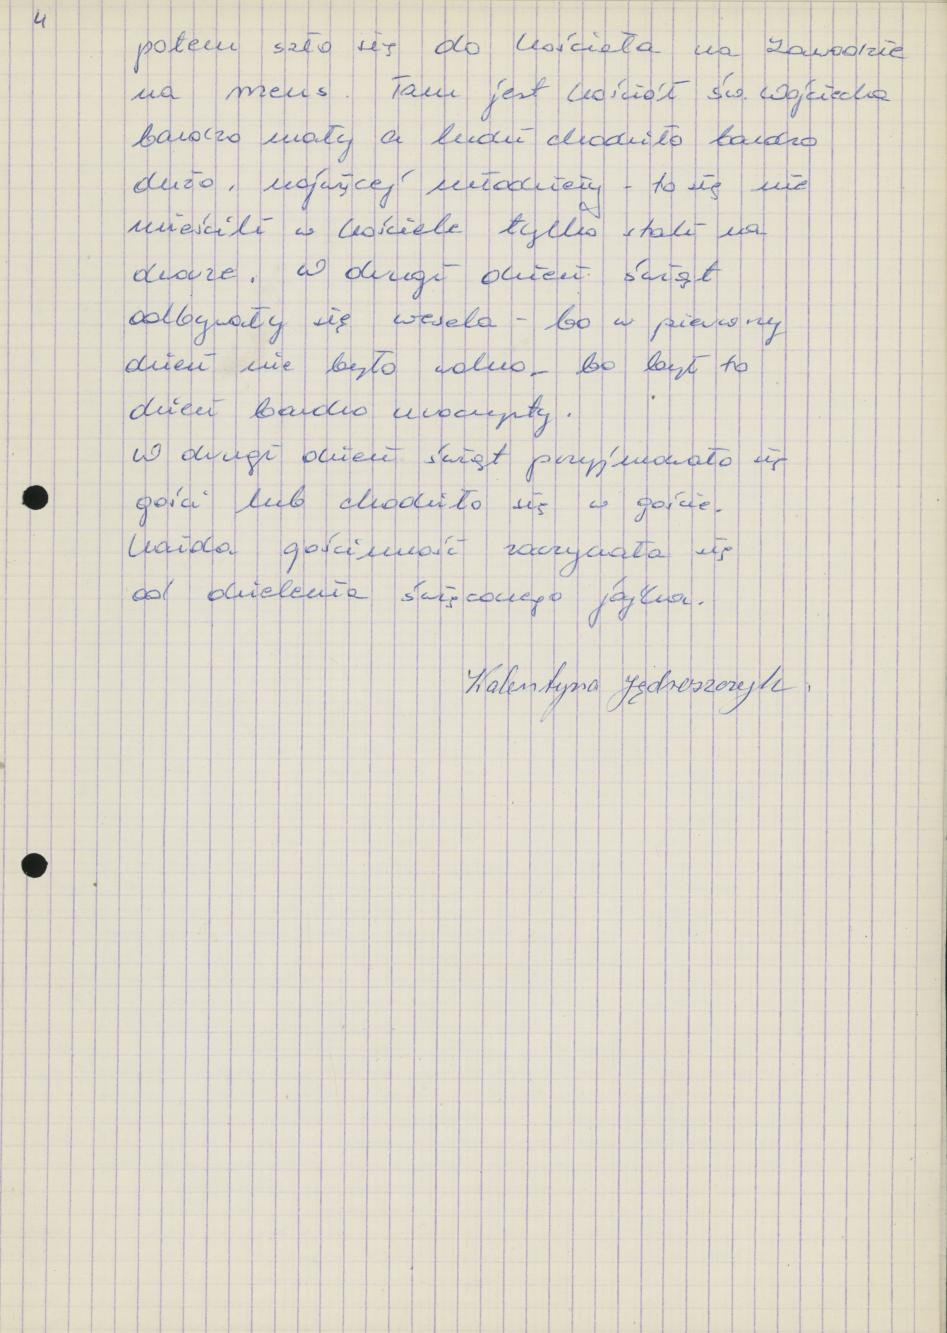 4
potem szło się do kościoła na Zawodzie
na mens. Tam jest kościół św. Wojciecha
bardzo mały a ludzi chodziło bardzo
dużo, najwięcej młodzieży - to się nie
mieścili w kościele tylko stali na
dworze. W drugi dzień świąt
odbywały się wesela - bo w pierwszy
dzień nie było wolno - bo był to
dzień bardzo uroczysty.
W drugi dzień świąt przyjmowało się
gości lub chodziło się w goście.
Każda gościnność zaczynała się
od dzielenia święconego jajka.
Walentyna Jędraszczyk.